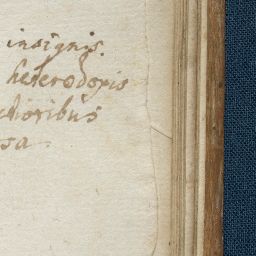 insignis.
heterodoxis
ctioribus
sa.